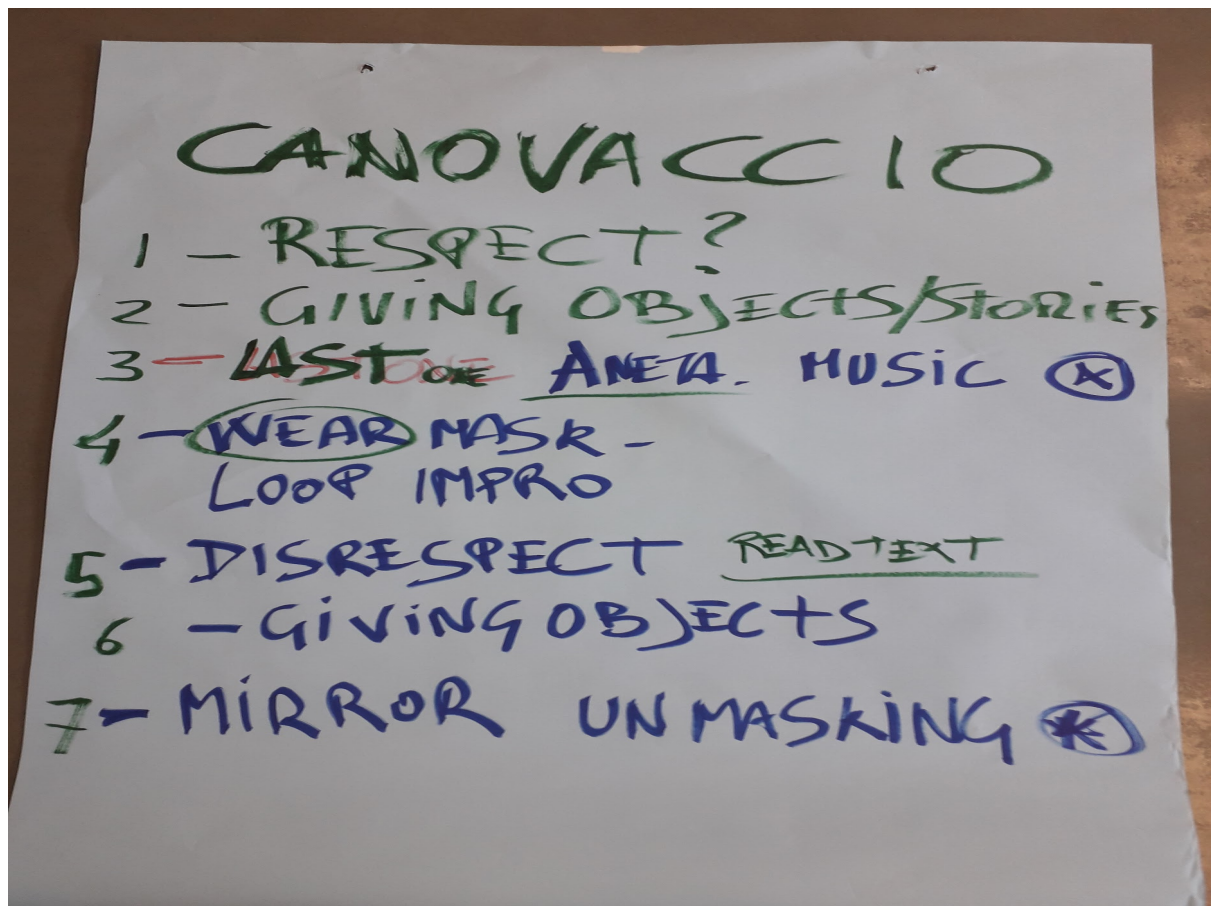 CANOVACCIO
1 - RESPECT?
2 - GIVING OBJECTS/STORIES
3 - LAST ONE ANETA. MUSIC
4 - WEAR MASK -
LOOP IMPRO
5 - DISRESPECT READ TEXT
6 - GIVING OBJECTS
7 - MIRROR UNMASKING *